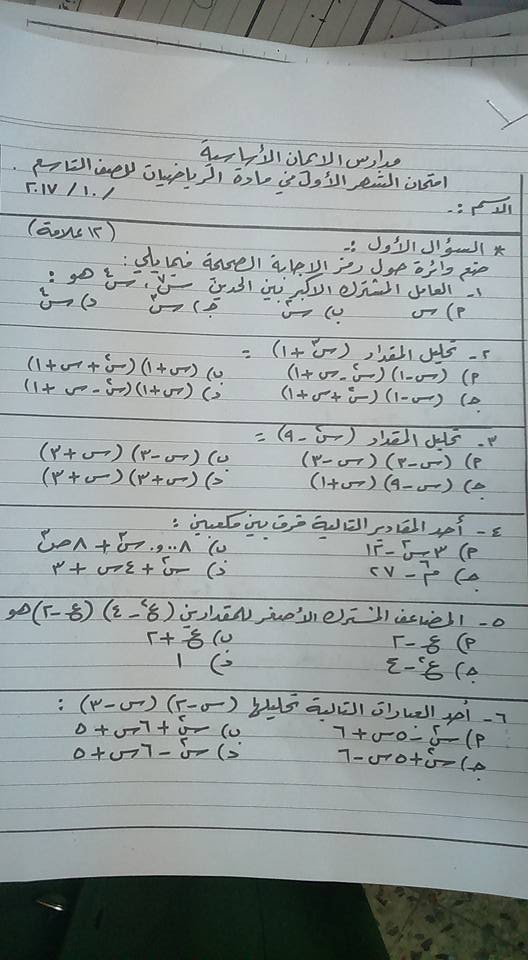 مدارس الايمان الأساسية
امتحان الشهر الأول في مادة الرياضيات للصف التاسع .
الاسم :-  / ١٠ / ٢٠١٧
* السؤال الأول :- (١٢ علامة)
ضع دائرة حول رمز الاجابة الصحيحة فيما يلي :
١- العامل المشترك الاكبر بين الحدين س٧ ، س٤ هو :
أ) س  ب) س٢  جـ) س٣  د) س٤
٢- تحليل المقدار (س٣ + ١) =
أ) (س-١) (س٢ - س + ١)  ب) (س+١) (س٢ + س + ١)
جـ) (س-١) (س٢ + س + ١)  د) (س+١) (س٢ - س + ١)
٣- تحليل المقدار (س٢ - ٩) =
أ) (س-٣) (س-٣)  ب) (س-٣) (س+٣)
جـ) (س-٩) (س+١)  د) (س+٣) (س+٣)
٤- أحد المقادير التالية فرق بين مكعبين :
أ) ٣س٢ - ١٢  ب) ٠,٠٠٨ س٣ + ٨ص٣
جـ) م٦ - ٢٧  د) س٢ + ٤س + ٣
٥- المضاعف المشترك الأصغر للمقدارين (ع٢ - ٤) (ع - ٢) هو
أ) ع - ٢  ب) ع + ٢
جـ) ع٢ - ٤  د) ١
٦- أحد العبارات التالية تحليلها (س-٢) (س-٣) :
أ) س٢ - ٥س + ٦  ب) س٢ + ٦س + ٥
جـ) س٢ + ٥س - ٦  د) س٢ - ٦س + ٥